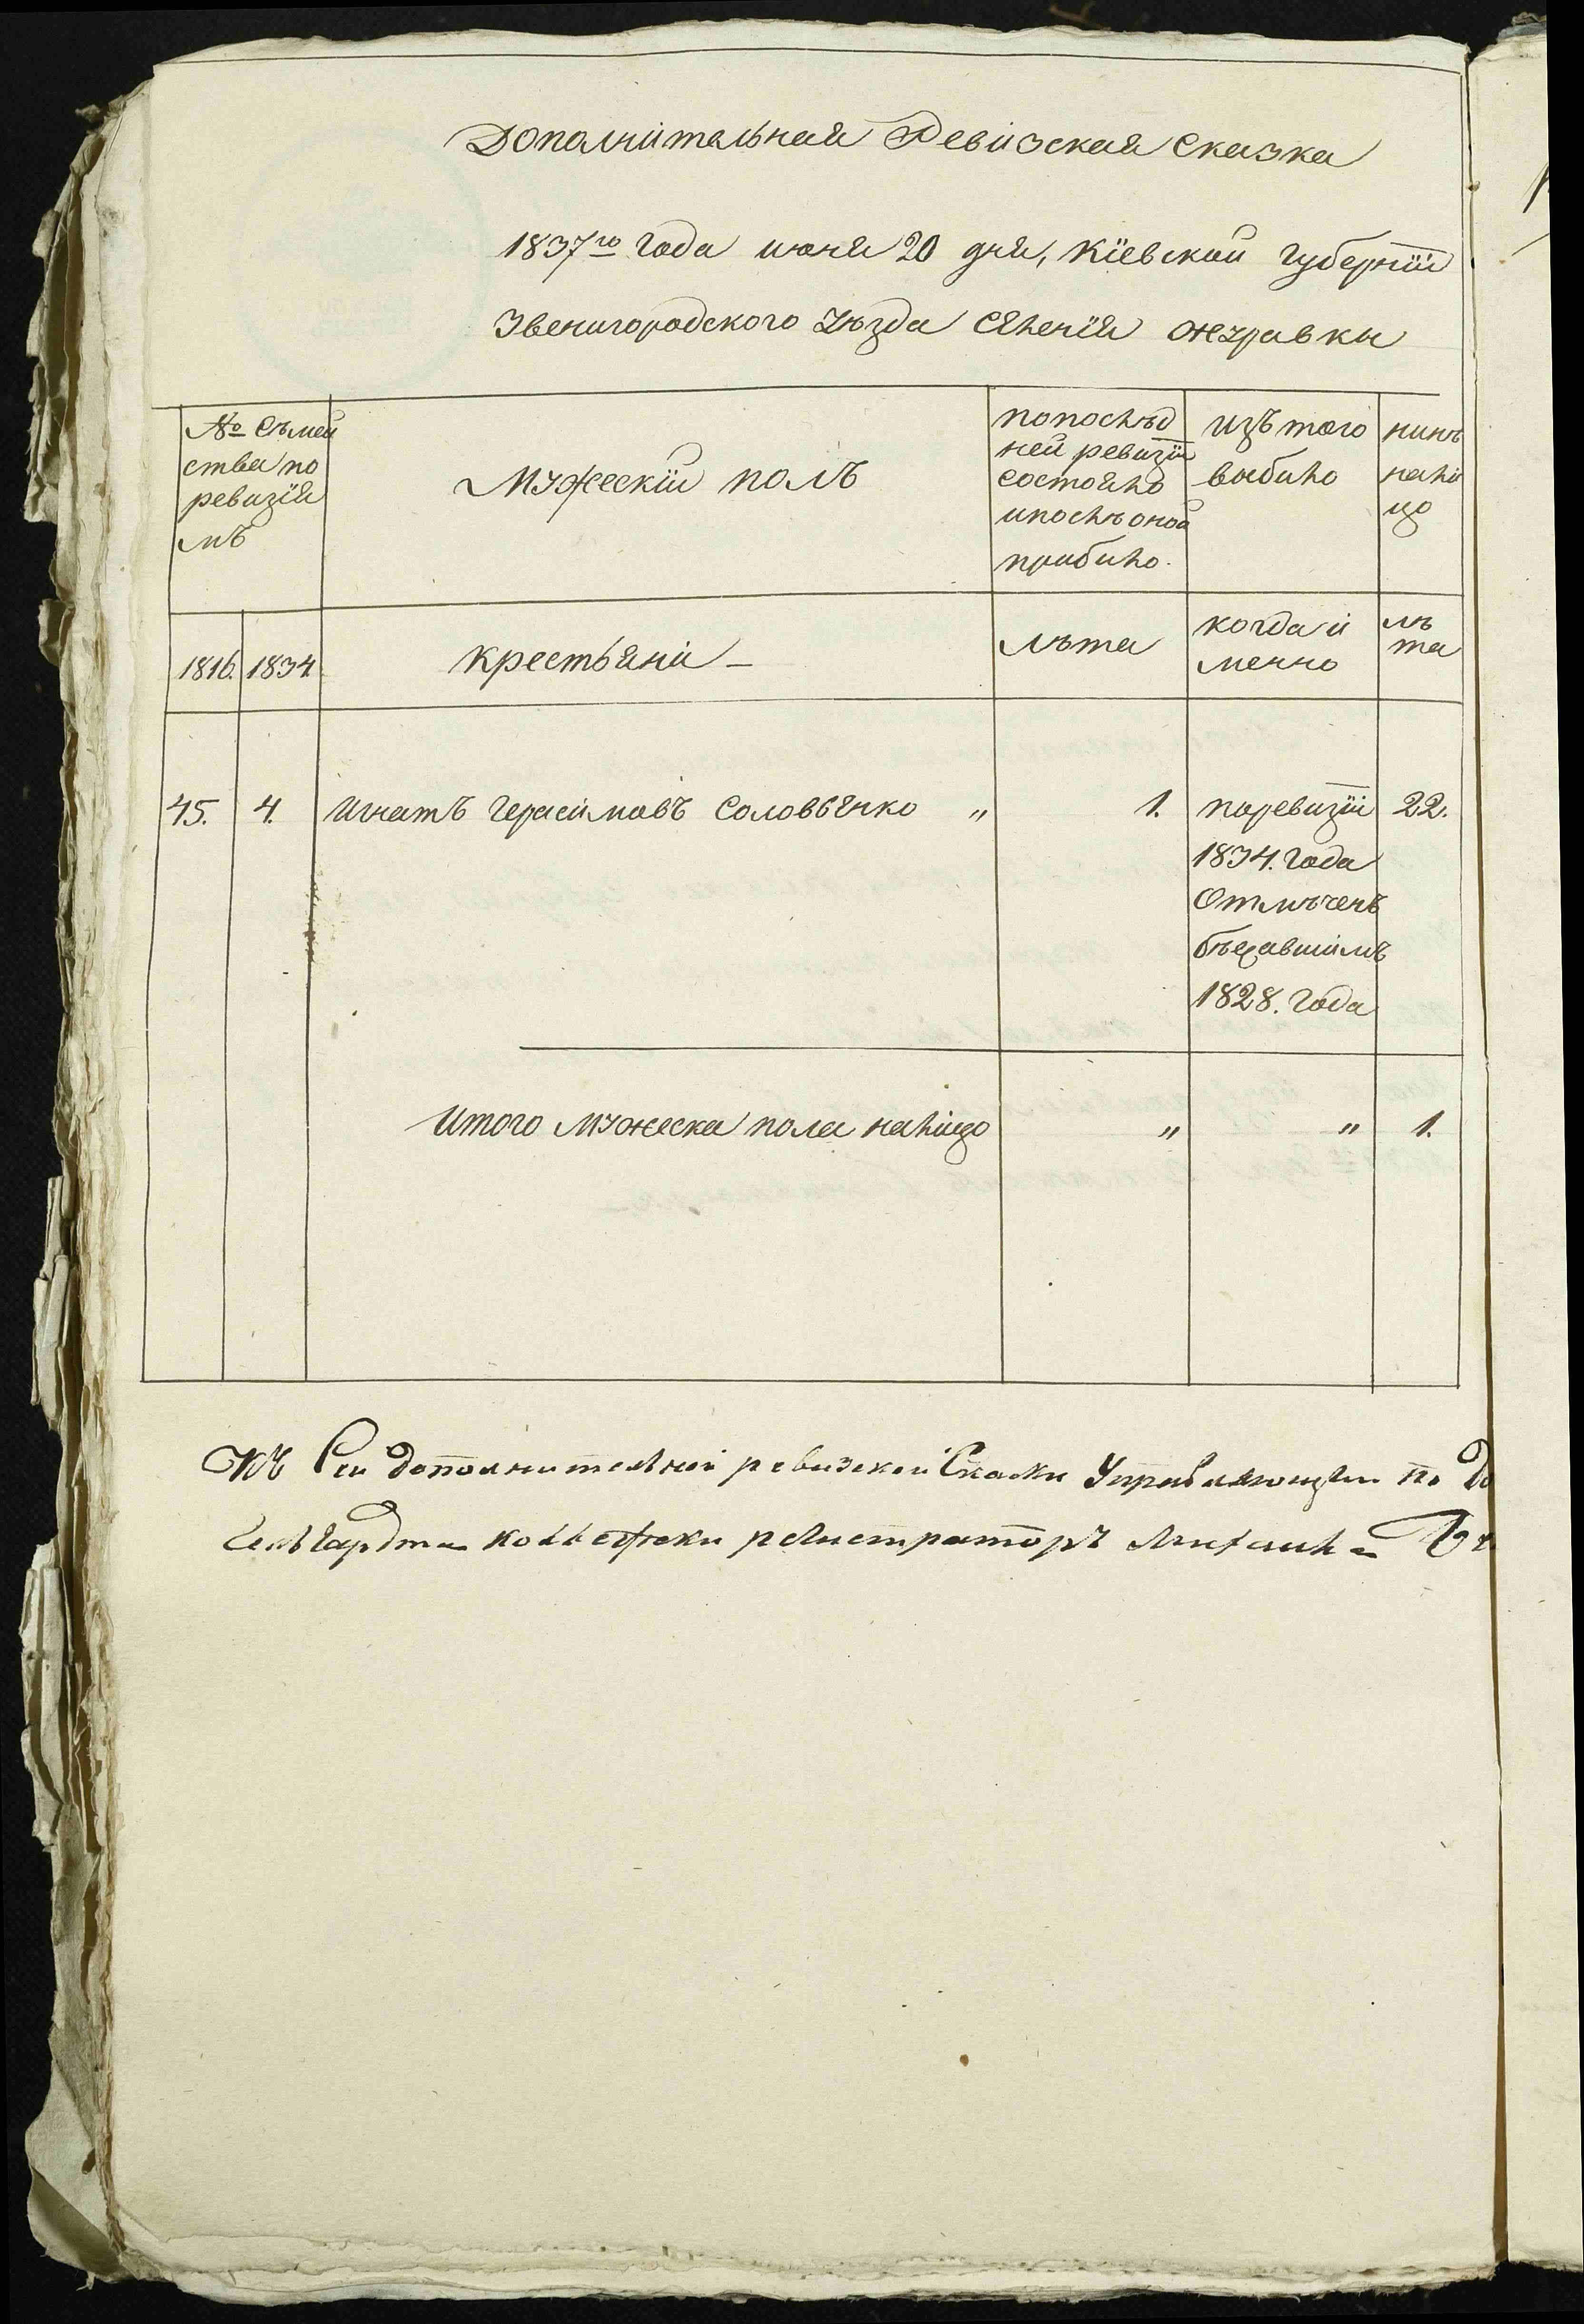 Дополнительная Ревизская Сказка
1837го года июня 20 дня, Кїевской губернїи
Звенигородского уѣзда селенїя Журавки
№ Съмей
ства по
ревизїя
мъ
Мужескїй полъ
по послѣд
ней ревизїи
состояло
и послѣ оной
прибило.
изъ того
выбило
нинѣ
нали
цо
1816. 1834.
крестьяни
лѣта
когда и
менно
лѣ
та
45. 4. Игнатъ Герасимовъ Соловвенко " 1. по ревизїи 22.
1834. года
Отмѣченъ
бѣжавшимъ
1828. года
Итого мужеска пола налицо " " 1.
Къ Сей дополнительной ревизской Скаски Управляющий
регистраторъ